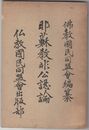 佛教國民同盟會編纂
耶蘇教非公認論
佛教國民同盟會出版部